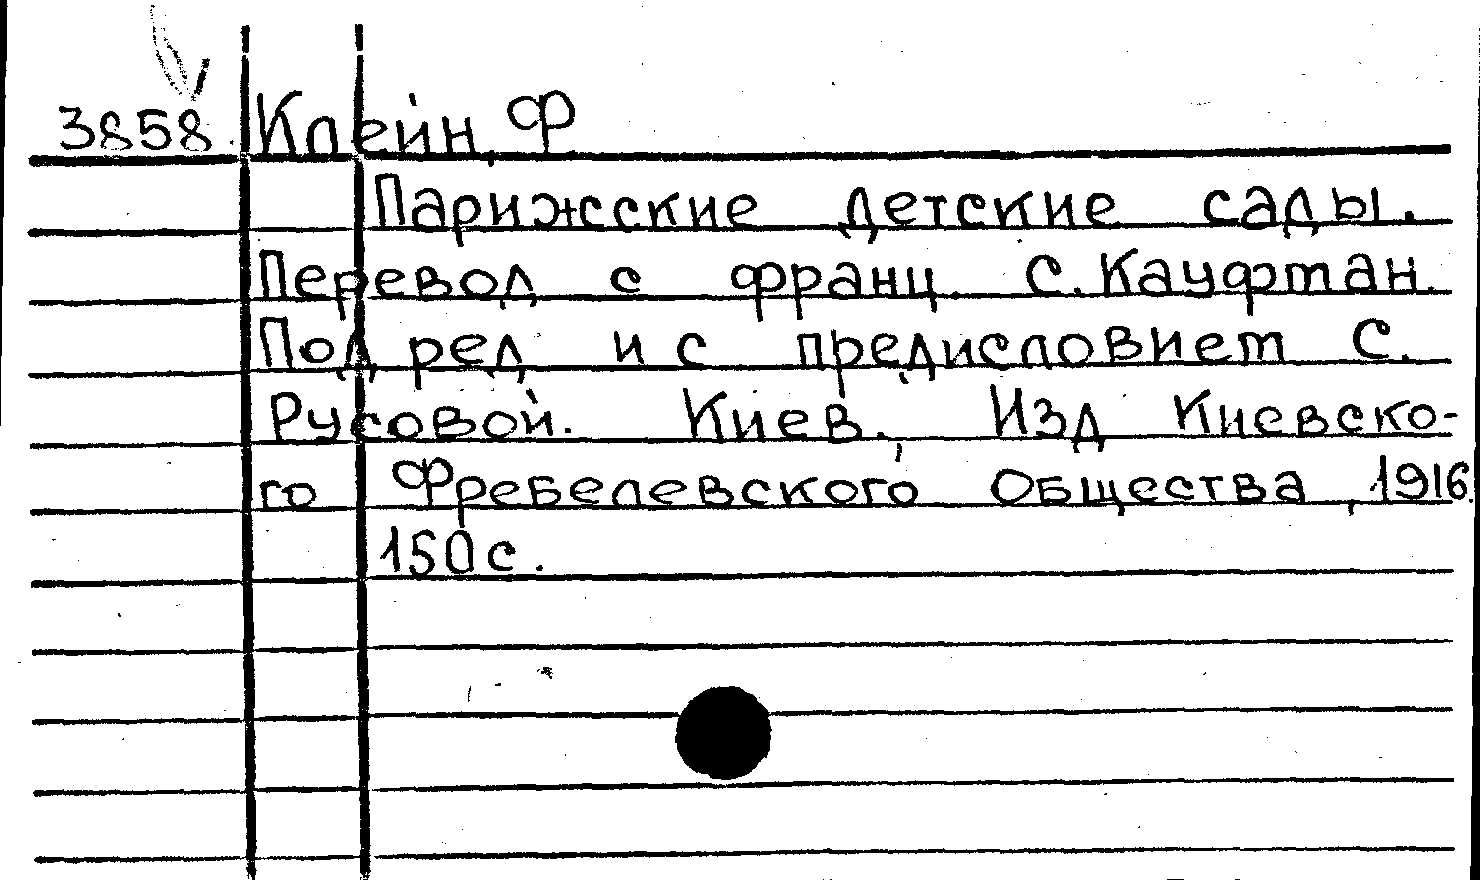 3858. Клейн, Ф
Парижские детские сады.
Перевод с франц. С. Кауфтан.
Под ред и с предисловием С.
Русовой. Киев., Изд Киевско-
го Фребелевского Общества, 1916.
150 с.